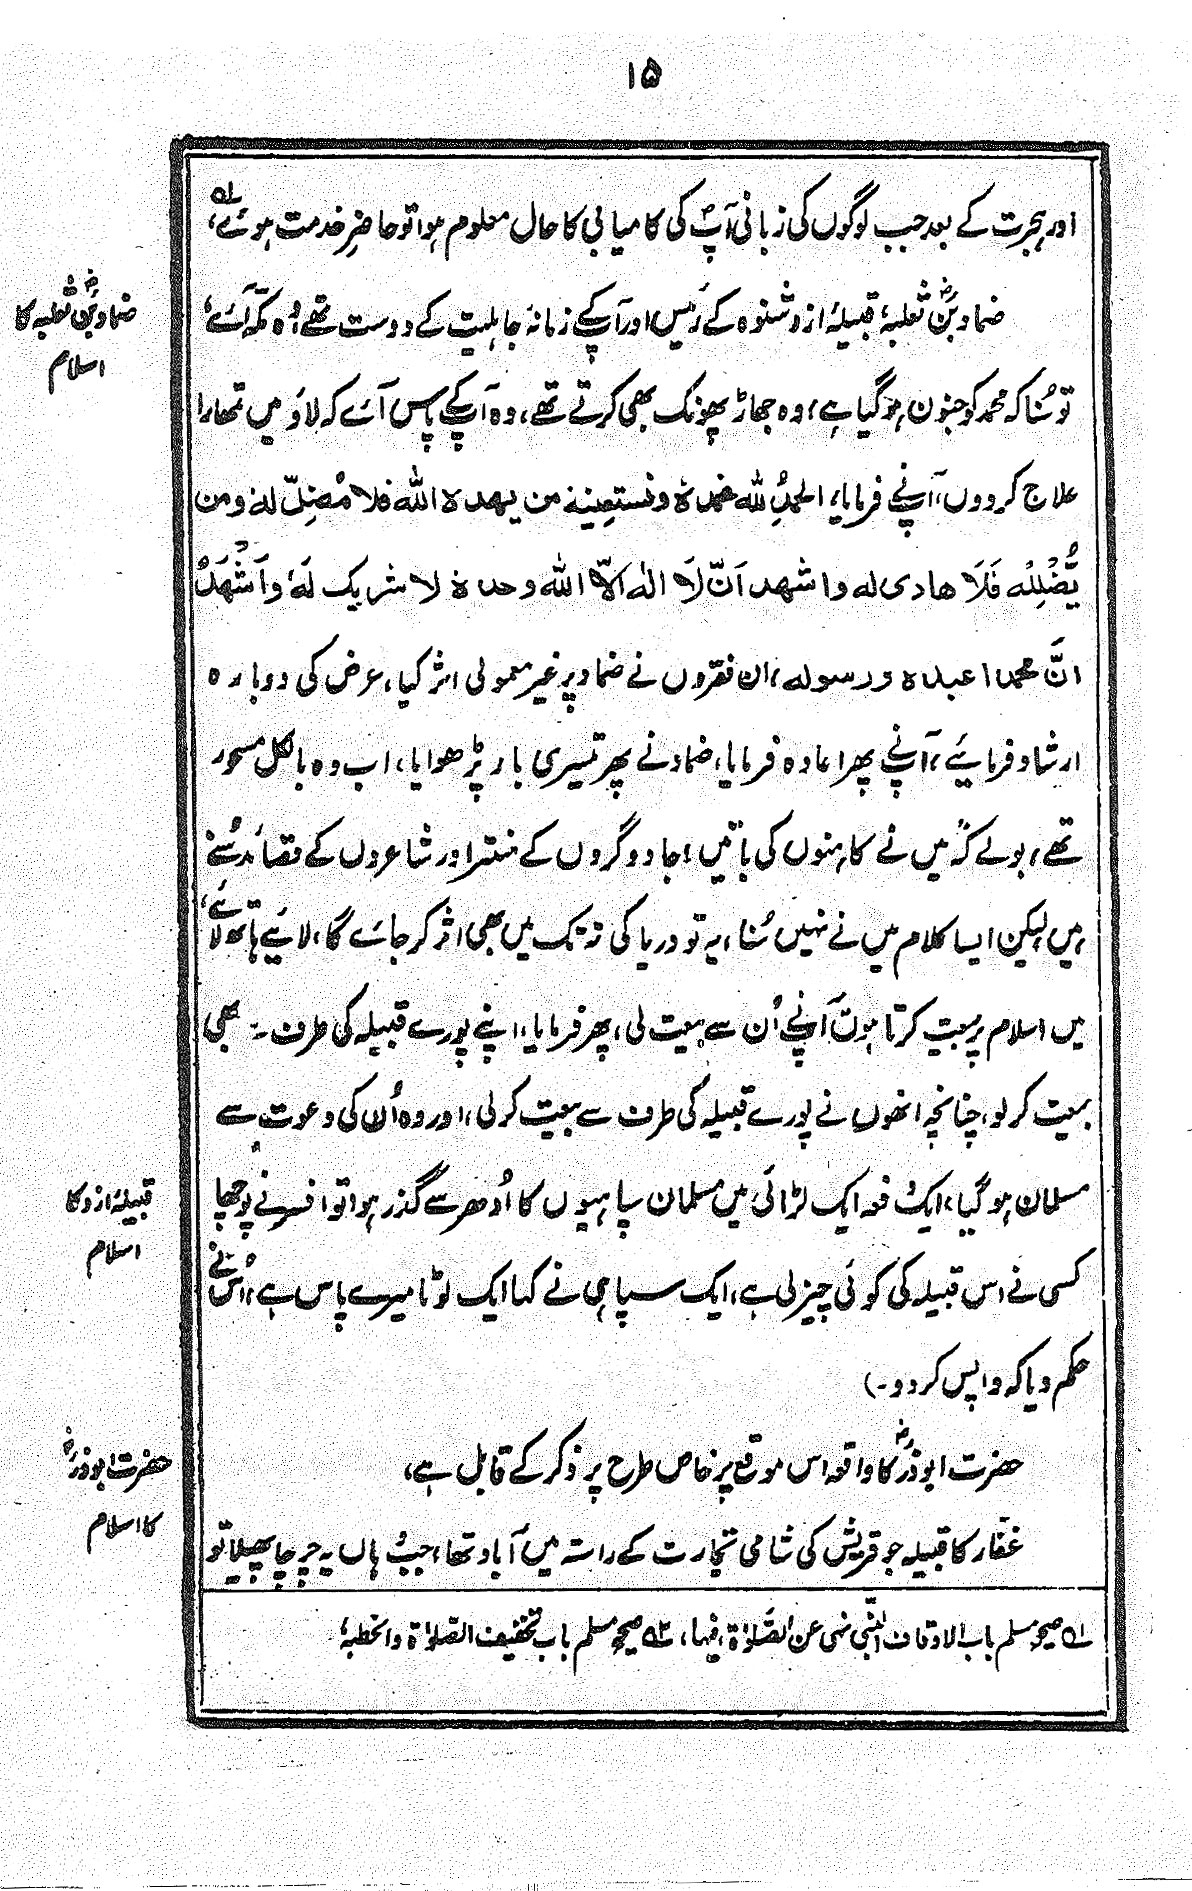 ۱۵
اور ہجرت کے بعد جب لوگوں کی زبانی آپؐ کی کامیابی کا حال معلوم ہوا تو حاضرِ خدمت ہوئے ؂۱،
ضمادؓ بن ثعلبہ کا
اسلام
ضمادؓ بن ثعلبہ، قبیلۂ ازدشنوہ کے رئیس اور آپ کے زمانۂ جاہلیت کے دوست تھے، وہ مکہ آئے،
تو سُنا کہ محمد کو جنون ہو گیا ہے، وہ جھاڑ پھونک بھی کرتے تھے، وہ آپ کے پاس آئے کہ لاؤ میں تمھارا
علاج کر دوں، آپ نے فرمایا، الحمدُ لله نحمدهٗ و نستعینه من یهده الله فلا مُضِلّ لهٗ و من
یُّضْلِلْه فَلَا هادی له و اشهد اَنّ لَا الٰه الّا الله وحدهٗ لا شریک لَهٗ و اَشْهَدُ
انَّ محمدا عبده و رسوله، ان فقروں نے ضماد پر غیر معمولی اثر کیا، عرض کی دوبارہ
ارشاد فرمائیے، آپ نے پھر اعادہ فرمایا، ضماد نے پھر تیسری بار پڑھوایا، اب وہ بالکل مسحور
تھے، بولے کہ میں نے کاہنوں کی باتیں، جادوگروں کے منتر اور شاعروں کے قصائد سُنے
ہیں لیکن ایسا کلام میں نے نہیں سُنا، یہ تو دریا کی تہ تک میں بھی اثر کر جائے گا، لائیے ہاتھ لائیے،
میں اسلام پر بیعت کرتا ہوں آپ نے اُن سے بیعت لی، پھر فرمایا، اپنے پورے قبیلہ کی طرف سے بھی
بیعت کر لو، چنانچہ انھوں نے پورے قبیلہ کی طرف سے بیعت کر لی، اور وہ اُن کی دعوت سے
قبیلۂ ازد کا
اسلام
مسلمان ہو گیا، ایک دفعہ ایک لڑائی میں مسلمان سپاہیوں کا اُدھر سے گذر ہوا تو افسر نے پوچھا
کسی نے اس قبیلہ کی کوئی چیز لی ہے، ایک سپاہی نے کہا ایک لوٹا میرے پاس ہے، اُس نے
حکم دیا کہ واپس کر دو۔)
حضرت ابوذرؓ
کا اسلام
حضرت ابوذرؓ کا واقعہ اس موقع پر خاص طرح پر ذکر کے قابل ہے،
غفار کا قبیلہ جو قریش کی شامی تجارت کے راستہ میں آباد تھا، جب وہاں یہ چرچا پھیلا تو
؂۱ صحیح مسلم باب الاوقات الّتی نہی عن الصّلوٰۃ فیہا، ؂۲ صحیح مسلم باب تخفیف الصلوٰۃ والخطبہ،